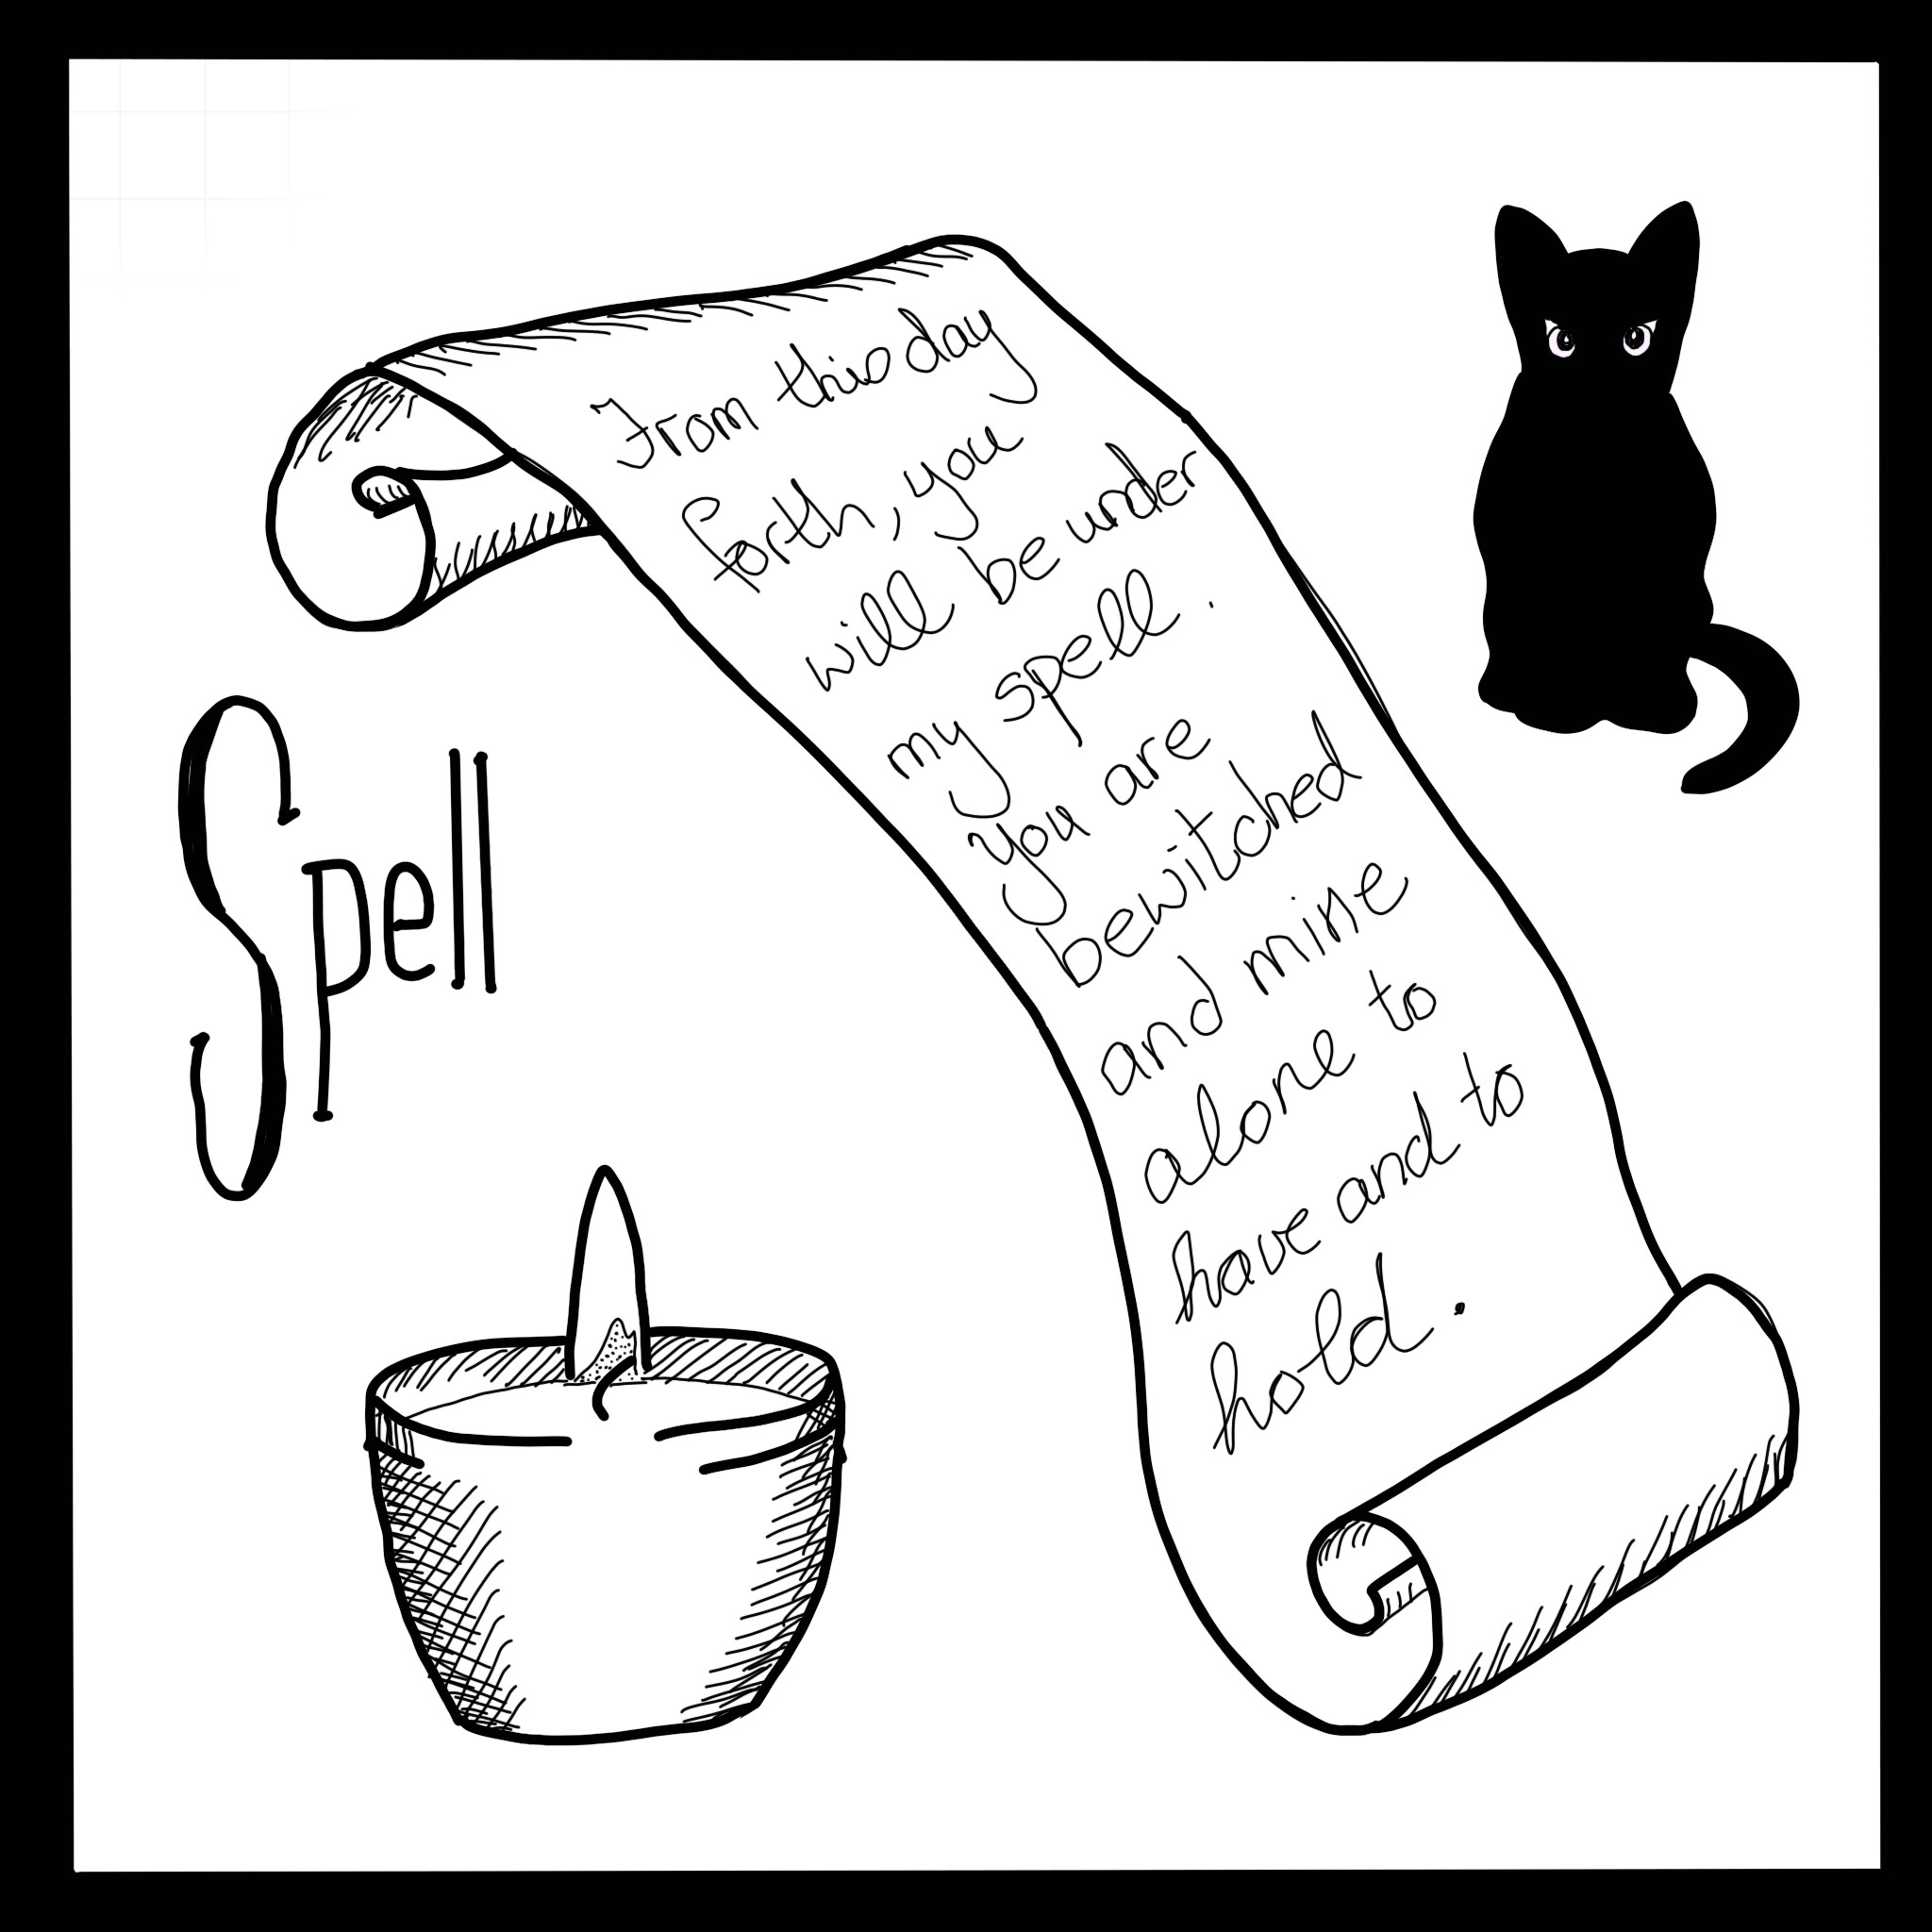 From this day
forth, you
will be under
my spell.
You are
bewitched
and mine
alone to
have and to
hold.
Spell